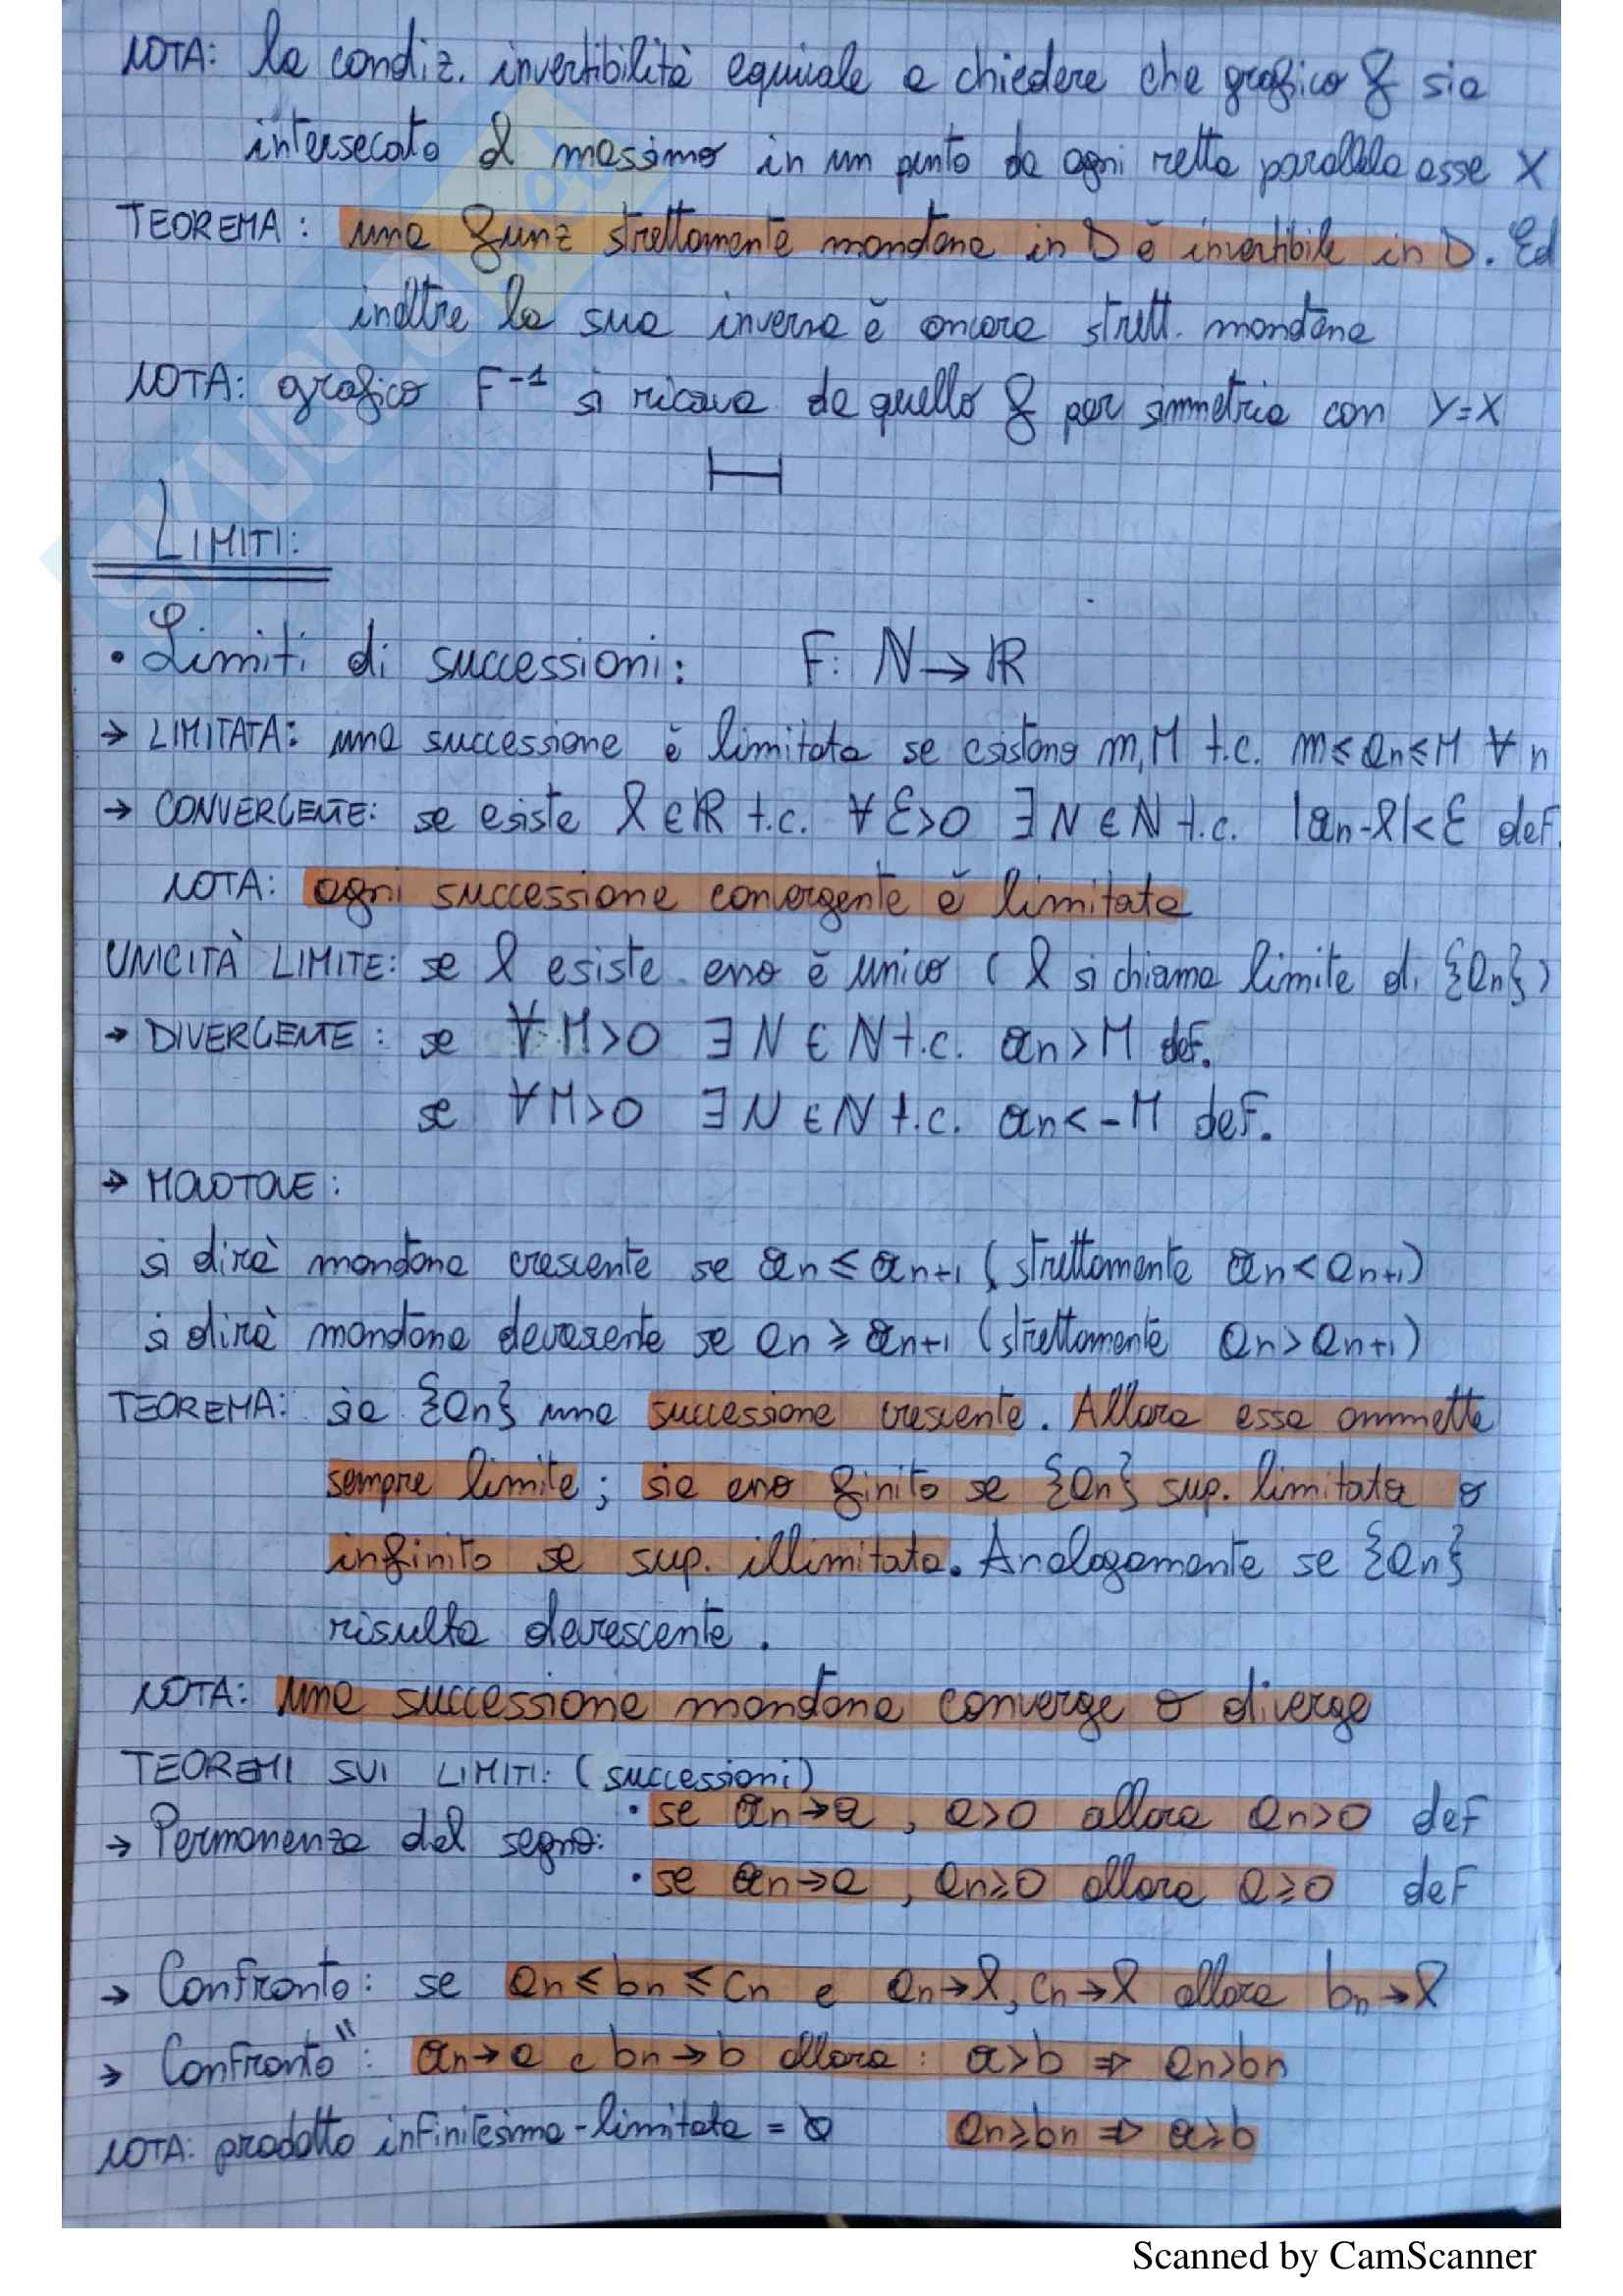 NOTA: la condiz. invertibilità equivale a chiedere che grafico f sia
intersecato al massimo in un punto da ogni retta parallela asse X
TEOREMA: una funz strettamente monotona in D è invertibile in D. Ed
inoltre la sua inversa è ancora strett. monotona
NOTA: grafico F⁻¹ si ricava da quello f per simmetria con Y=X
LIMITI:
• Limiti di successioni: F: ℕ→ℝ
→ LIMITATA: una successione è limitata se esistono m,M t.c. m≤an≤M ∀n
→ CONVERGENTE: se esiste l∈ℝ t.c. ∀ε>0 ∃N∈ℕ t.c. |an-l|<ε def.
NOTA: ogni successione convergente è limitata
UNICITÀ LIMITE: se l esiste esso è unico (l si chiama limite di {an})
→ DIVERGENTE: se ∀M>0 ∃N∈ℕ t.c. an>M def.
se ∀M>0 ∃N∈ℕ t.c. an<-M def.
→ MONOTONE:
si dirà monotona crescente se an≤an+1 (strettamente an<an+1)
si dirà monotona decrescente se an≥an+1 (strettamente an>an+1)
TEOREMA: sia {an} una successione crescente. Allora essa ammette
sempre limite; sia esso finito se {an} sup. limitata o
infinito se sup. illimitata. Analogamente se {an}
risulta decrescente.
NOTA: una successione monotona converge o diverge
TEOREMI SUI LIMITI: (successioni)
→ Permanenza del segno: • se an→a, a>0 allora an>0 def
• se an→a, an≥0 allora a≥0 def
→ Confronto: se an≤bn≤cn e an→l, cn→l allora bn→l
→ Confronto": an→a e bn→b allora: a>b ⇒ an>bn
NOTA: prodotto infinitesima-limitata = 0 an≥bn ⇒ a≥b
Scanned by CamScanner